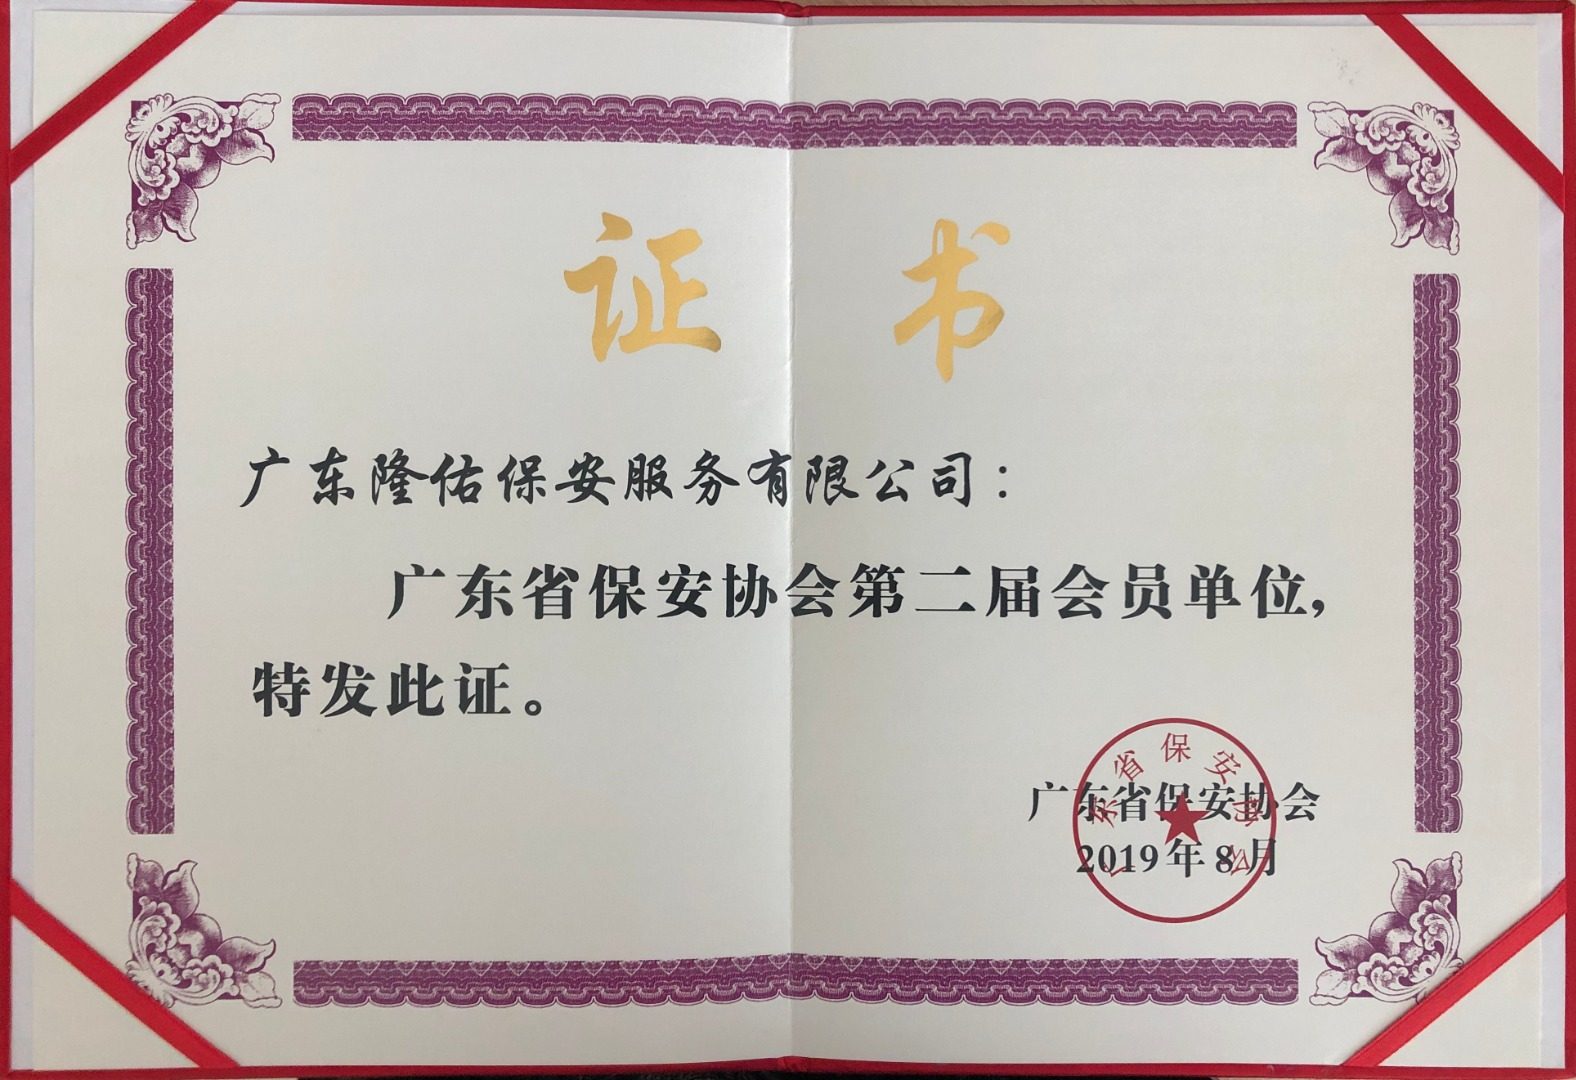 证书
广东隆佑保安服务有限公司：
广东省保安协会第二届会员单位，
特发此证。
广东省保安协会
广东省保安协会
2019年8月